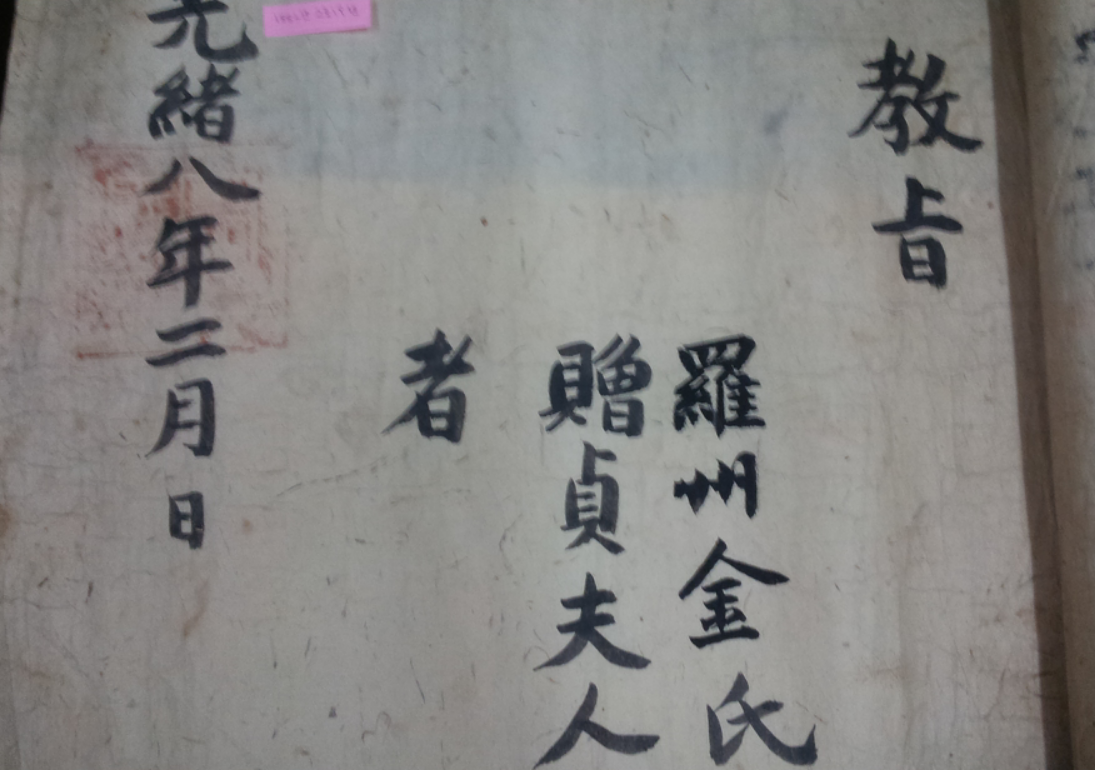 教旨
羅州金氏
贈貞夫人
者
光緒八年二月日